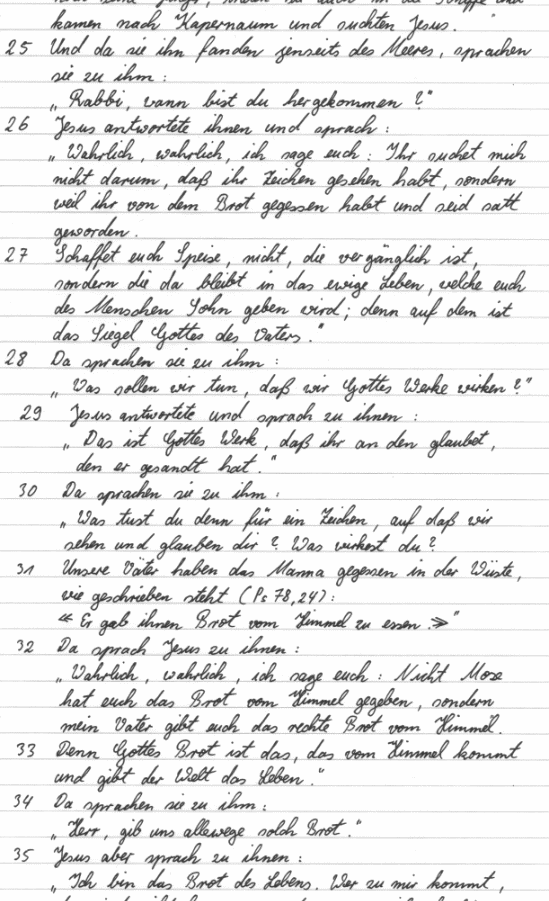 kamen nach Kapernaum und suchten Jesus.
25 Und da sie ihn fanden jenseits des Meeres, sprachen
sie zu ihm:
„Rabbi, wann bist du hergekommen?"
26 Jesus antwortete ihnen und sprach:
„Wahrlich, wahrlich, ich sage euch: Ihr suchet mich
nicht darum, daß ihr Zeichen gesehen habt, sondern
weil ihr von dem Brot gegessen habt und seid satt
geworden.
27 Schaffet euch Speise, nicht, die vergänglich ist,
sondern die da bleibt in das ewige Leben, welche euch
des Menschen Sohn geben wird; denn auf dem ist
das Siegel Gottes des Vaters."
28 Da sprachen sie zu ihm:
„Was sollen wir tun, daß wir Gottes Werke wirken?"
29 Jesus antwortete und sprach zu ihnen:
„Das ist Gottes Werk, daß ihr an den glaubet,
den er gesandt hat."
30 Da sprachen sie zu ihm:
„Was tust du denn für ein Zeichen, auf daß wir
sehen und glauben dir? Was wirkest du?
31 Unsere Väter haben das Manna gegessen in der Wüste,
wie geschrieben steht (Ps 78,24):
« Er gab ihnen Brot vom Himmel zu essen.»"
32 Da sprach Jesus zu ihnen:
„Wahrlich, wahrlich, ich sage euch: Nicht Mose
hat euch das Brot vom Himmel gegeben, sondern
mein Vater gibt euch das rechte Brot vom Himmel.
33 Denn Gottes Brot ist das, das vom Himmel kommt
und gibt der Welt das Leben."
34 Da sprachen sie zu ihm:
„Herr, gib uns allewege solch Brot."
35 Jesus aber sprach zu ihnen:
„Ich bin das Brot des Lebens. Wer zu mir kommt,